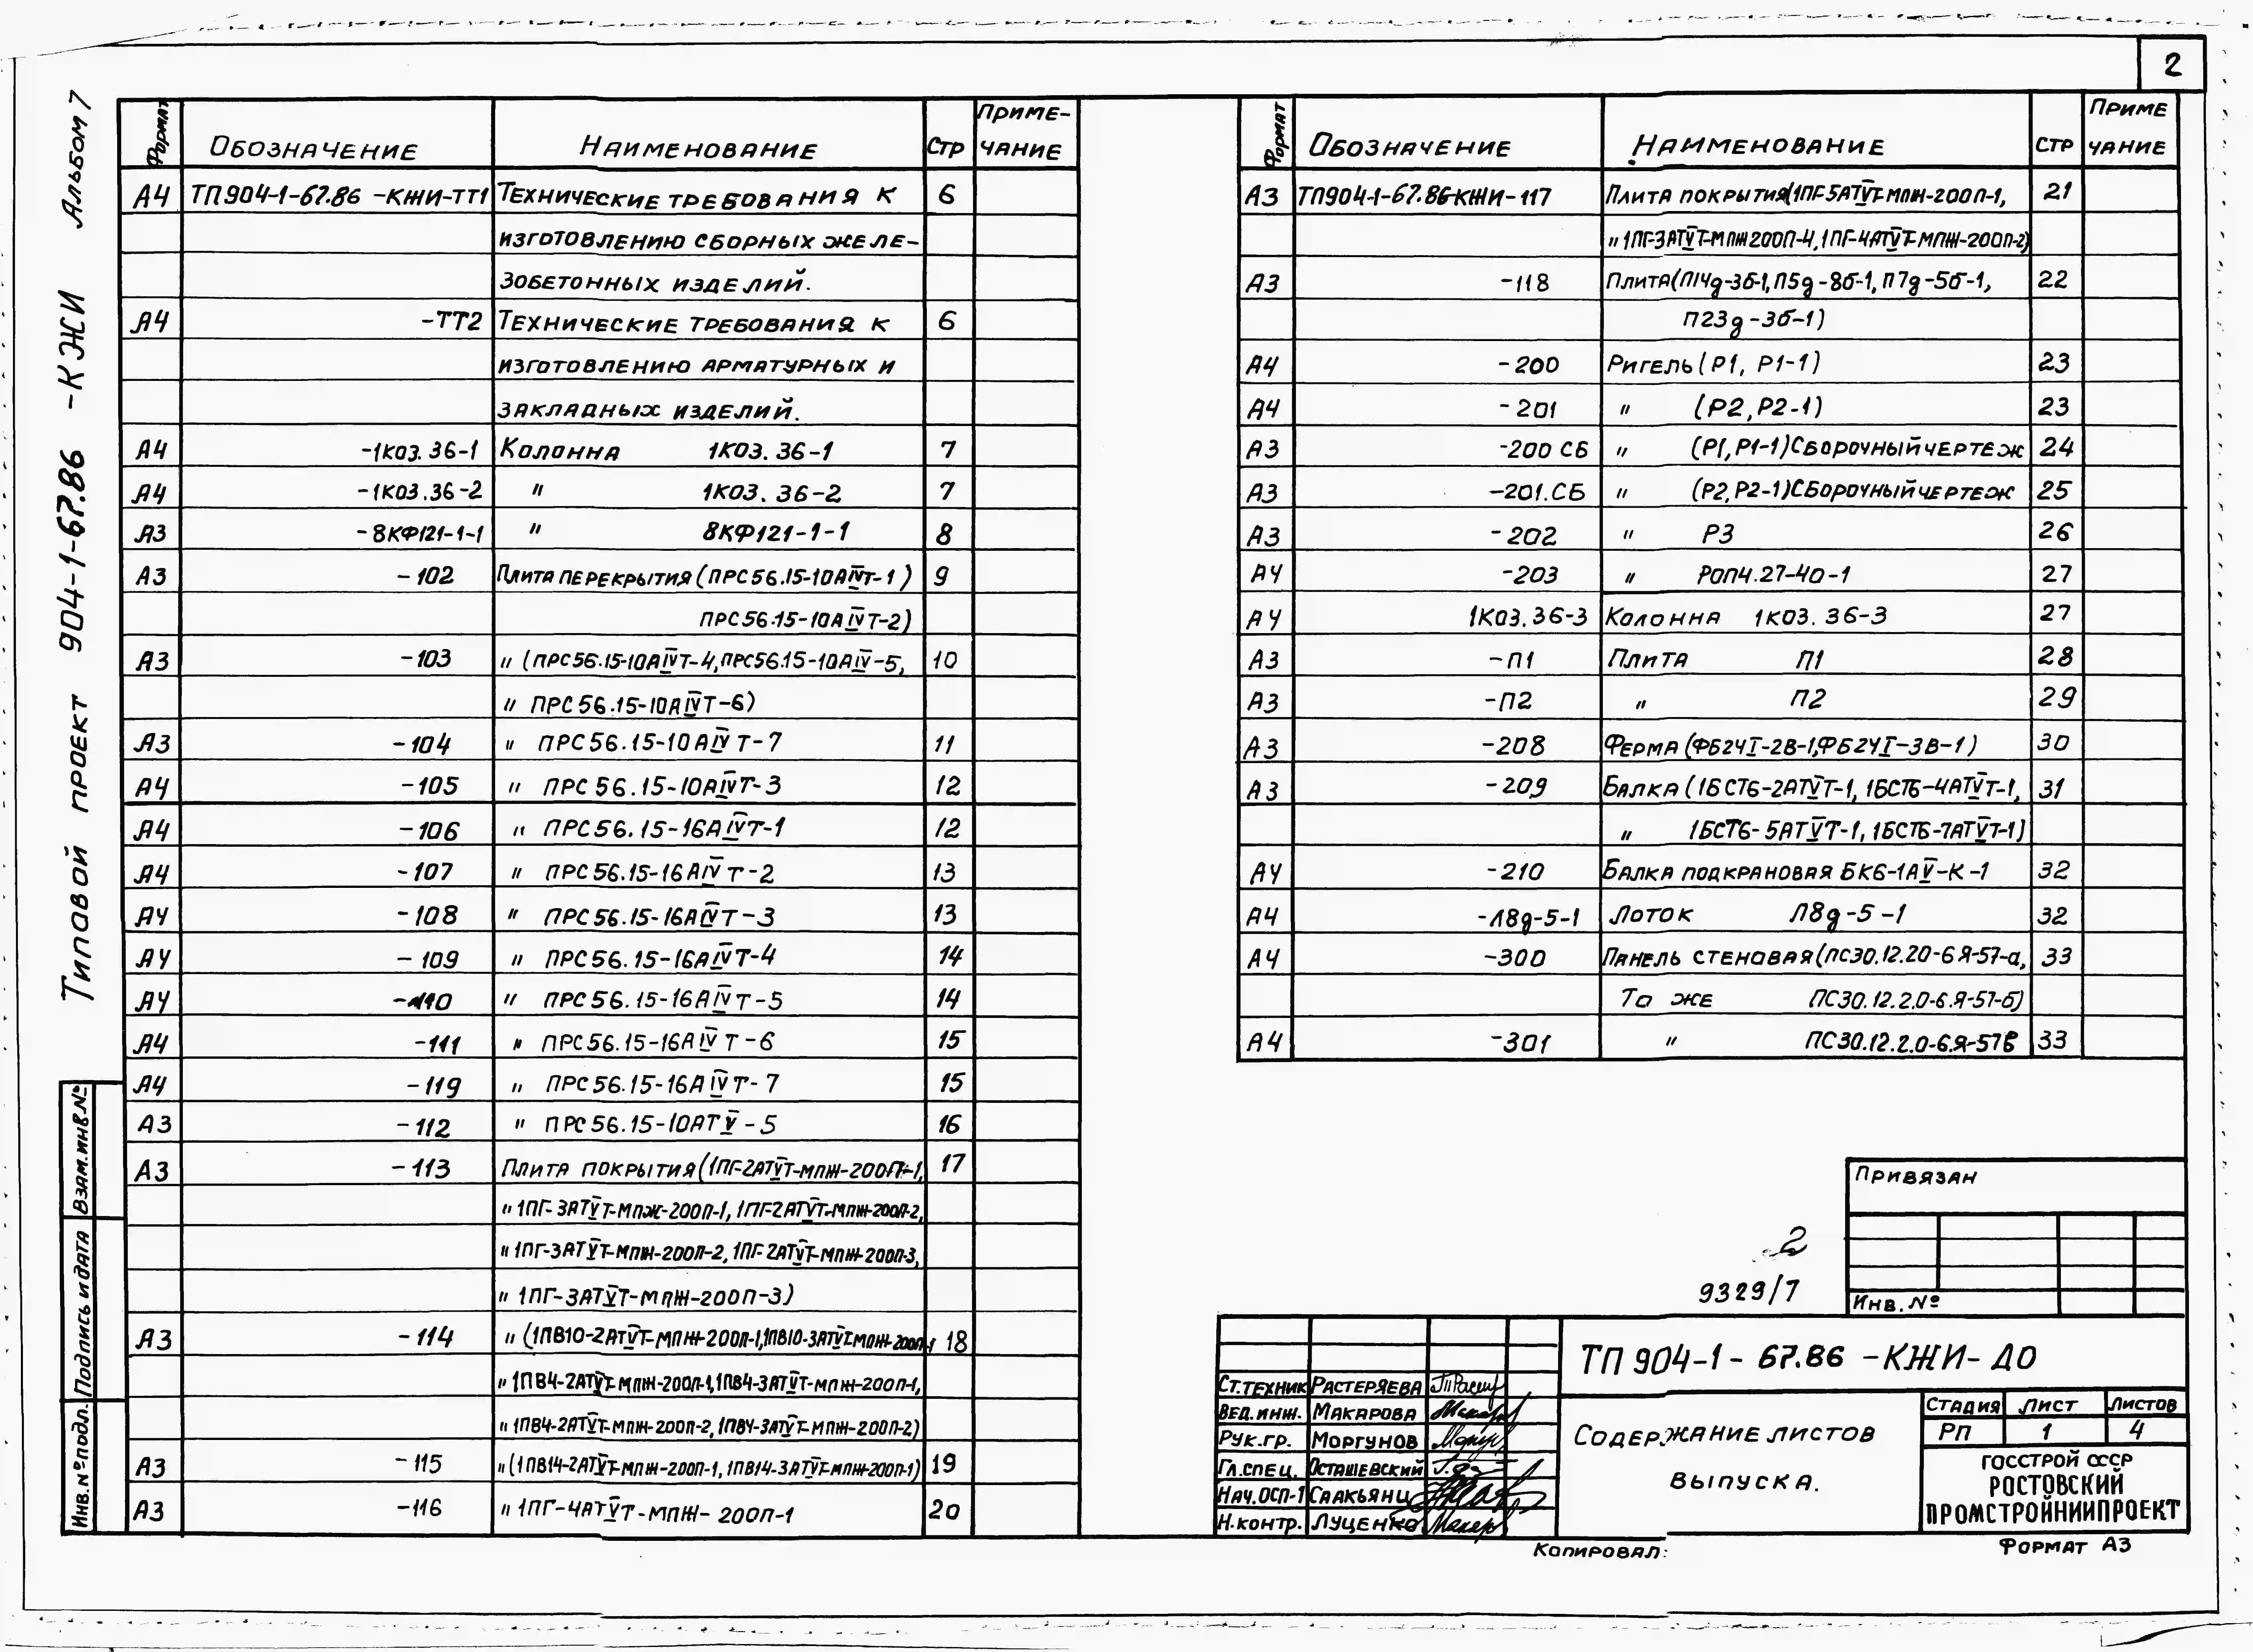 2
Типовой проект 904-1-67.86 -КЖИ Альбом 7
Формат Обозначение Наименование Стр Приме-
чание
А4 ТП904-1-67.86 -КЖИ-ТТ1 Технические требования к 6
изготовлению сборных желе-
зобетонных изделий.
А4 -ТТ2 Технические требования к 6
изготовлению арматурных и
закладных изделий.
А4 -1К03.36-1 Колонна 1К03.36-1 7
А4 -1К03.36-2 " 1К03.36-2 7
А3 -8КФ121-1-1 " 8КФ121-1-1 8
А3 -102 Плита перекрытия (ПРС56.15-10АIVт-1) 9
ПРС56.15-10АIVТ-2)
А3 -103 " (ПРС56.15-10АIVТ-4, ПРС56.15-10АIV-5, 10
" ПРС56.15-10АIVТ-6)
А3 -104 " ПРС56.15-10АIVТ-7 11
А4 -105 " ПРС56.15-10АIVТ-3 12
А4 -106 " ПРС56.15-16АIVТ-1 12
А4 -107 " ПРС56.15-16АIVТ-2 13
А4 -108 " ПРС56.15-16АIVТ-3 13
А4 -109 " ПРС56.15-16АIVТ-4 14
А4 -110 " ПРС56.15-16АIVТ-5 14
А4 -111 " ПРС56.15-16АIVТ-6 15
А4 -119 " ПРС56.15-16АIVТ-7 15
А3 -112 " ПРС56.15-10АТV-5 16
А3 -113 Плита покрытия (1ПГ-2АТVТ-МПЖ-200П-1, 17
" 1ПГ-3АТVТ-МПЖ-200П-1, 1ПГ-2АТVТ-МПЖ-200П-2,
" 1ПГ-3АТVТ-МПЖ-200П-2, 1ПГ-2АТVТ-МПЖ-200П-3,
" 1ПГ-3АТVТ-МПЖ-200П-3)
А3 -114 " (1ПВ10-2АТVТ-МПЖ-200П-1, 1ПВ10-3АТVТ-МПЖ-200П-1 18
" 1ПВ4-2АТVТ-МПЖ-200П-1, 1ПВ4-3АТVТ-МПЖ-200П-1,
" 1ПВ4-2АТVТ-МПЖ-200П-2, 1ПВ4-3АТVТ-МПЖ-200П-2)
А3 -115 " (1ПВ14-2АТVТ-МПЖ-200П-1, 1ПВ14-3АТVТ-МПЖ-200П-1) 19
А3 -116 " 1ПГ-4АТVТ-МПЖ-200П-1 20
Формат Обозначение Наименование Стр Приме
чание
А3 ТП904-1-67.86-КЖИ-117 Плита покрытия (1ПГ-5АТVТ-МПЖ-200П-1, 21
" 1ПГ-3АТVТ-МПЖ200П-4, 1ПГ-4АТVТ-МПЖ-200П-2)
А3 -118 Плита (П14д-3б-1, П5д-8б-1, П7д-5б-1, 22
П23д-3б-1)
А4 -200 Ригель (Р1, Р1-1) 23
А4 -201 " (Р2, Р2-1) 23
А3 -200 СБ " (Р1, Р1-1) Сборочный чертеж 24
А3 -201.СБ " (Р2, Р2-1) Сборочный чертеж 25
А3 -202 " Р3 26
А4 -203 " Роп4.27-40-1 27
А4 1К03.36-3 Колонна 1К03.36-3 27
А3 -П1 Плита П1 28
А3 -П2 " П2 29
А3 -208 Ферма (ФБ24I-2В-1, ФБ24I-3В-1) 30
А3 -209 Балка (1БСТ6-2АТVТ-1, 1БСТ6-4АТVТ-1, 31
" 1БСТ6-5АТVТ-1, 1БСТ6-7АТVТ-1)
А4 -210 Балка подкрановая БК6-1АV-К-1 32
А4 -Л8д-5-1 Лоток Л8д-5-1 32
А4 -300 Панель стеновая (ПС30.12.20-6Я-57-а, 33
То же ПС30.12.2.0-6.Я-57-б)
А4 -301 " ПС30.12.2.0-6.Я-57в 33
Взам.инв№
Подпись и дата
Инв.№подл.
Привязан
Инв.№
2
9329/7
Ст.техник Растеряева
Вед.инж. Макарова
Рук.гр. Моргунов
Гл.спец. Осташевский
Нач.ОСП-1 Саакьянц
Н.контр. Луценко
ТП 904-1-67.86 -КЖИ-ДО
Содержание листов
выпуска.
Стадия Лист Листов
РП 1 4
Госстрой СССР
Ростовский
Промстройниипроект
Копировал:
Формат А3